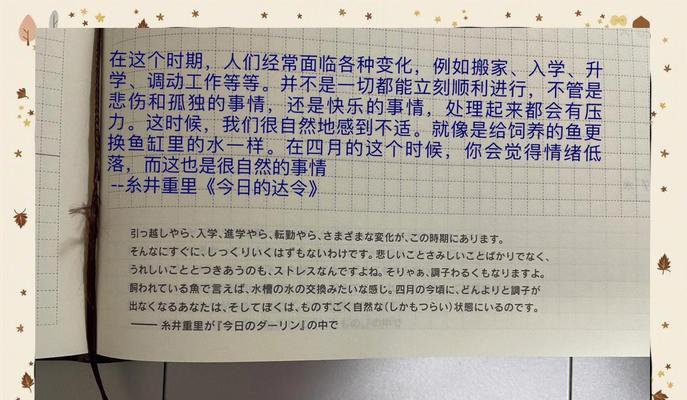 在这个时期，人们经常面临各种变化，例如搬家、入学、升
学、调动工作等等。并不是一切都能立刻顺利进行，不管是
悲伤和孤独的事情，还是快乐的事情，处理起来都会有压
力。这时候，我们很自然地感到不适。就像是给饲养的鱼更
换鱼缸里的水一样。在四月的这个时候，你会觉得情绪低
落，而这也是很自然的事情
--糸井重里《今日的达令》
引っ越しやら、入学、進学やら、転勤やら、さまざまな変化が、この時期にあります。
そんなにすぐに、しっくりいくはずもないわけです。悲しいことさみしいことばかりでなく、
うれしいこととつきあうのも、ストレスなんですよね。そりゃぁ、調子わるくもなりますよ。
飼われている魚で言えば、水槽の水の交換みたいな感じ。四月の今頃に、どんよりと調子が
出なくなるあなたは、そしてぼくは、ものすごく自然な(しかもつらい)状態にいるのです。
—— 糸井重里が『今日のダーリン』の中で